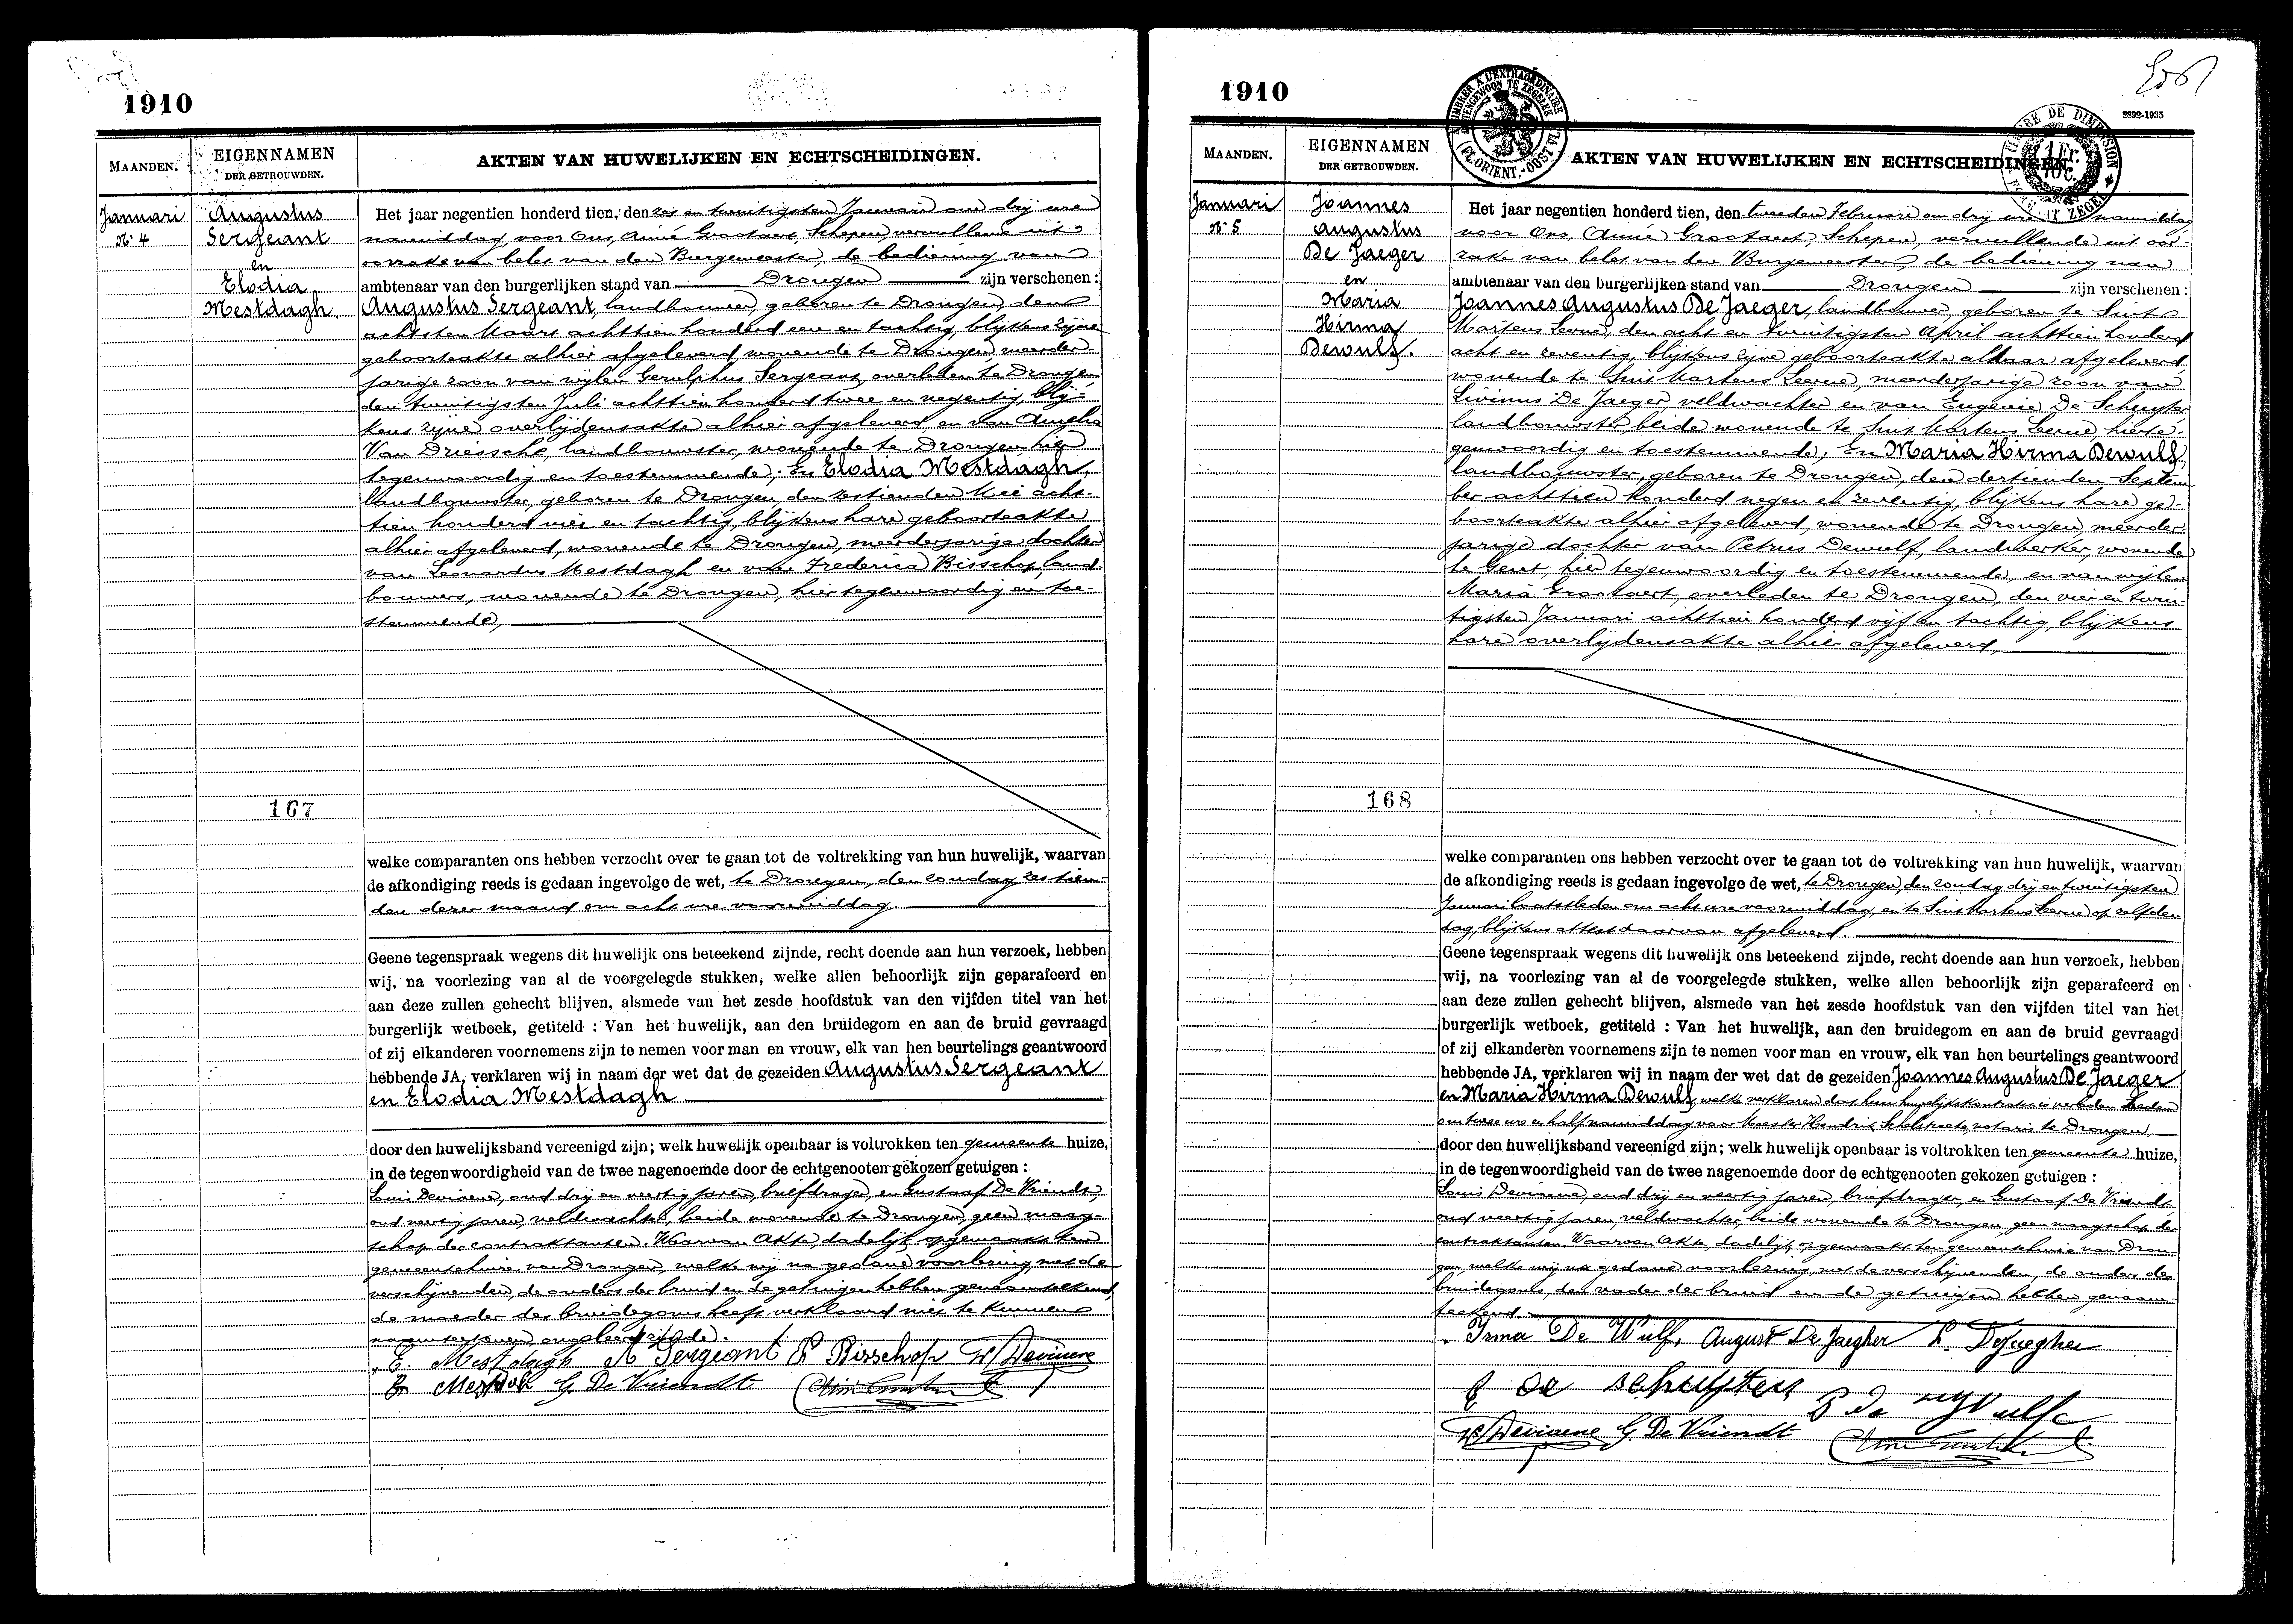 1910
MAANDEN.
EIGENNAMEN
DER GETROUWDEN.
AKTEN VAN HUWELIJKEN EN ECHTSCHEIDINGEN.
Januari
N° 4
Augustus
Sergeant
en
Elodia
Mestdagh.
Het jaar negentien honderd tien, den zes en twintigsten Januari om drij ure
namiddag, voor Ons, Aimé Grootaert, Schepen, vervullende uit
oorzake van belet van den Burgemeester, de bediening van
ambtenaar van den burgerlijken stand van Drongen zijn verschenen :
Augustus Sergeant, landbouwer, geboren te Drongen, den
achtsten Maart achttien honderd een en tachtig, blijkens zijne
geboorteakte alhier afgeleverd, wonende te Drongen, meerder-
jarige zoon van wijlen Gerulphus Sergeant, overleden te Drongen
den twintigsten Juli achttien honderd twee en negentig, blij-
kens zijne overlijdensakte alhier afgeleverd en van
Van Driessche, landbouwster, wonende te Drongen, hier
tegenwoordig en toestemmende; En Elodia Mestdagh,
landbouwster, geboren te Drongen, den zestienden Mei acht-
tien honderd vier en tachtig, blijkens hare geboorteakte
alhier afgeleverd, wonende te Drongen, meerderjarige dochter
van Leonardus Mestdagh en van Frederica Bisschop, land-
bouwers, wonende te Drongen, hier tegenwoordig en toe-
stemmende,
167
welke comparanten ons hebben verzocht over te gaan tot de voltrekking van hun huwelijk, waarvan
de afkondiging reeds is gedaan ingevolge de wet, te Drongen, den zondag zestien-
den dezer maand om acht ure voormiddag
Geene tegenspraak wegens dit huwelijk ons beteekend zijnde, recht doende aan hun verzoek, hebben
wij, na voorlezing van al de voorgelegde stukken, welke allen behoorlijk zijn geparafeerd en
aan deze zullen gehecht blijven, alsmede van het zesde hoofdstuk van den vijfden titel van het
burgerlijk wetboek, getiteld : Van het huwelijk, aan den bruidegom en aan de bruid gevraagd
of zij elkanderen voornemens zijn te nemen voor man en vrouw, elk van hen beurtelings geantwoord
hebbende JA, verklaren wij in naam der wet dat de gezeiden Augustus Sergeant
en Elodia Mestdagh
door den huwelijksband vereenigd zijn; welk huwelijk openbaar is voltrokken ten gemeente huize,
in de tegenwoordigheid van de twee nagenoemde door de echtgenooten gekozen getuigen :
Louis Deviaene, oud drij en veertig jaren, briefdrager, en Gustaaf De Vriendt,
oud veertig jaren, veldwachter, beide wonende te Drongen, geen maag-
schap der contraktanten. Waarvan Akte, dadelijk opgemaakt ten
gemeentehuize van Drongen, welke wij na gedane voorlezing, met de
verschijnenden, de ouders der bruid en de getuigen hebben genaamteekend,
de moeder des bruidegoms heeft verklaard niet te kunnen
naamteekenen, ongeleerd zijnde.
E. Mestdagh A Sergeant F Bisschop L Deviaene
G. De Vriendt
1910
2892-1935
TIMBRER A L'EXTRAORDINAIRE
BUITENGEWOON TE ZEGELEN
(FL. ORIENT.-OOST VL.)
1 Fr.
10 C.
MAANDEN.
EIGENNAMEN
DER GETROUWDEN.
AKTEN VAN HUWELIJKEN EN ECHTSCHEIDINGEN
Januari
N° 5
Joannes
Augustus
De Jaeger
en
Maria
Hirma
Dewulf.
Het jaar negentien honderd tien, den tweeden Februari om drij ure namiddag
voor Ons, Aimé Grootaert, Schepen, vervullende uit oor-
zake van belet van den Burgemeester, de bediening van
ambtenaar van den burgerlijken stand van Drongen zijn verschenen :
Joannes Augustus De Jaeger, landbouwer, geboren te Sint
Martens Leerne, den acht en twintigsten April achttien honderd
acht en zeventig, blijkens zijne geboorteakte aldaar afgeleverd,
wonende te Sint Martens Leerne, meerderjarige zoon van
Livinus De Jaeger, veldwachter en van Eugenie De Schuyter
landbouwster, beide wonende te Sint Martens Leerne, hierte-
genwoordig en toestemmende. En Maria Hirma Dewulf,
landbouwster, geboren te Drongen, den dertienden Septem
ber achttien honderd negen en zeventig, blijkens hare ge-
boorteakte alhier afgeleverd, wonende te Drongen, meerder-
jarige dochter van Petrus Dewulf, landwerker, wonende
te Gent, hier tegenwoordig en toestemmende, en van wijlen
Maria Grootaert, overleden te Drongen, den vier en twin-
tigsten Januari achttien honderd vijf en tachtig, blijkens
hare overlijdensakte alhier afgeleverd,
168
welke comparanten ons hebben verzocht over te gaan tot de voltrekking van hun huwelijk, waarvan
de afkondiging reeds is gedaan ingevolge de wet, te Drongen, den zondag drij en twintigsten
Januari laatstleden om acht ure voormiddag, en te Sint Martens Leerne op zelfden
dag, blijkens attest daarvan afgeleverd
Geene tegenspraak wegens dit huwelijk ons beteekend zijnde, recht doende aan hun verzoek, hebben
wij, na voorlezing van al de voorgelegde stukken, welke allen behoorlijk zijn geparafeerd en
aan deze zullen gehecht blijven, alsmede van het zesde hoofdstuk van den vijfden titel van het
burgerlijk wetboek, getiteld : Van het huwelijk, aan den bruidegom en aan de bruid gevraagd
of zij elkanderen voornemens zijn te nemen voor man en vrouw, elk van hen beurtelings geantwoord
hebbende JA, verklaren wij in naam der wet dat de gezeiden Joannes Augustus De Jaeger
en Maria Hirma Dewulf, welke verklaren dat hun huwelijkskontrakt is verleden heden
om twee ure en half namiddag voor Meester Hendrik Schelstraete, notaris te Drongen,
door den huwelijksband vereenigd zijn; welk huwelijk openbaar is voltrokken ten gemeente huize,
in de tegenwoordigheid van de twee nagenoemde door de echtgenooten gekozen getuigen :
Louis Deviaene, oud drij en veertig jaren, briefdrager, en Gustaaf De Vriendt
oud veertig jaren, veldwachter, beide wonende te Drongen, geen maagschap der
contraktanten. Waarvan Akte, dadelijk opgemaakt ten gemeentehuize van Dron-
gen, welke wij na gedane voorlezing, met de verschijnenden, de ouders des
bruidegoms, den vader der bruid en de getuigen hebben genaam-
teekend.
Irma De Wulf, August De Jaegher L. DeJaegher
E De Schuyter P De Wulf
L Deviaene G. De Vriendt